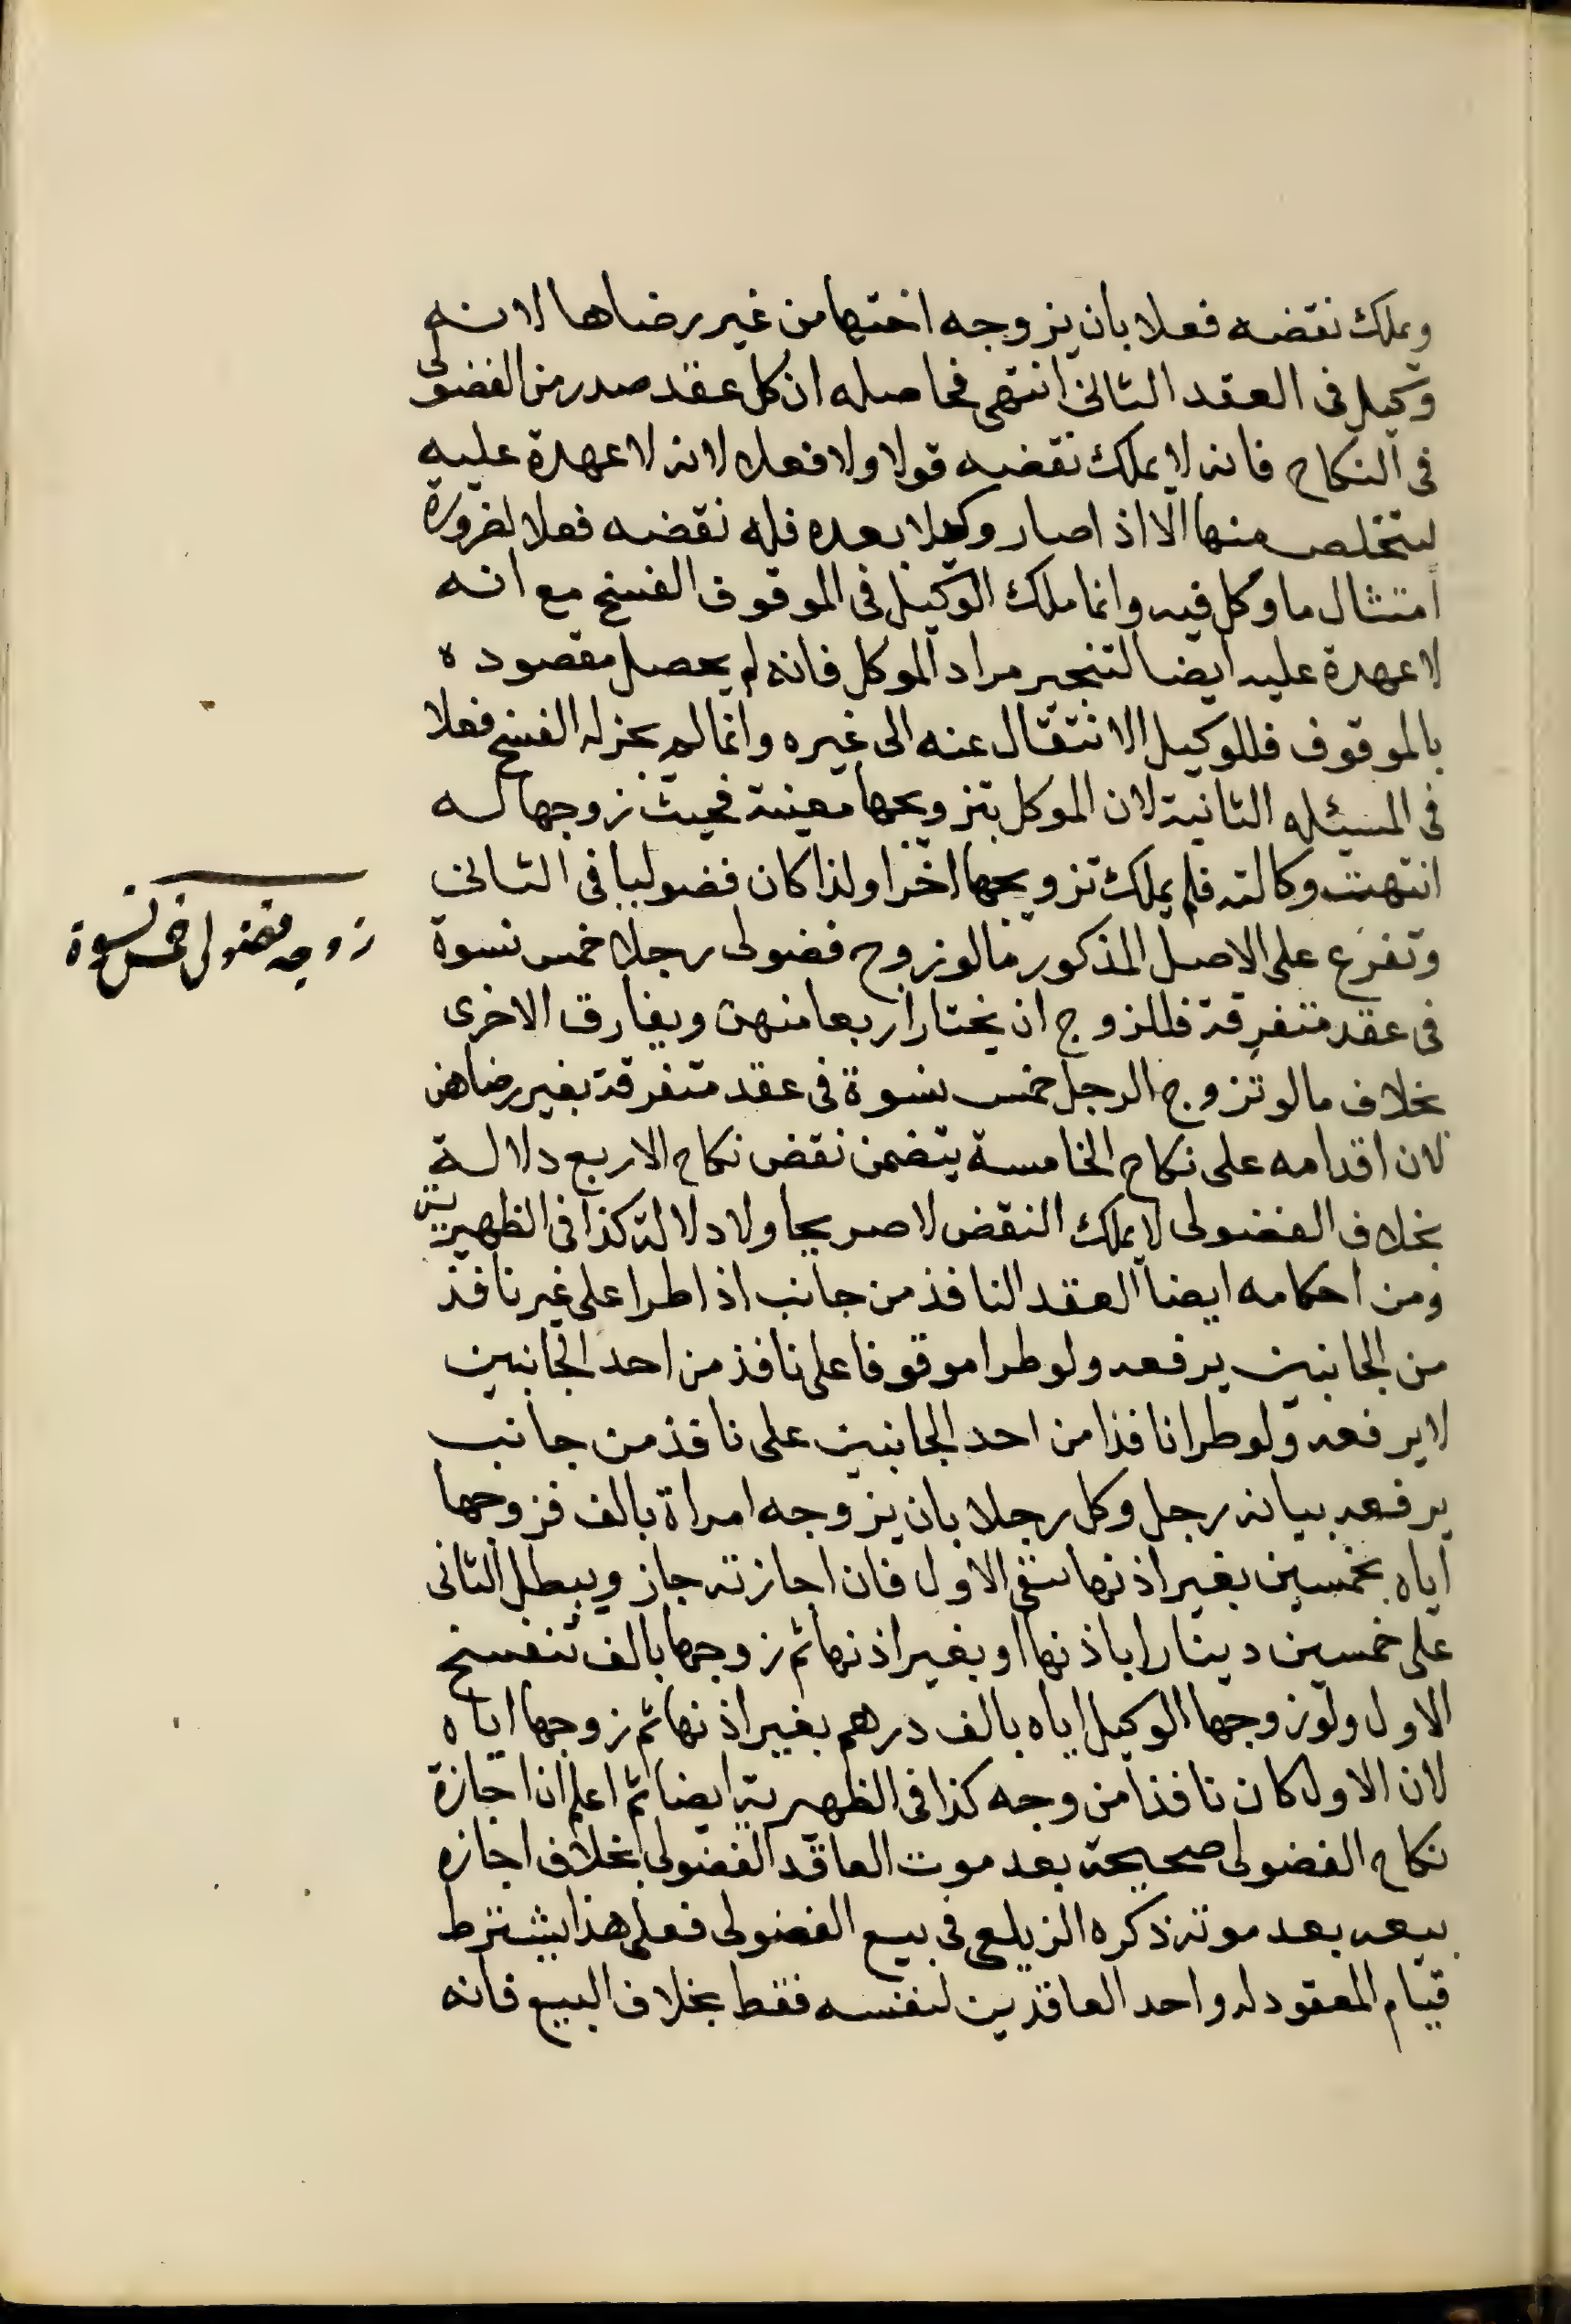 ويملك نقضه فعلا بان يزوجه اختها من غير رضاها لانه
وكيل فى العقد الثانى انتهى فحاصله ان كل عقد صدر من الفضولى
فى النكاح فانه لا يملك نقضه قولا ولا فعلا لانه لا عهدة عليه
ليتخلص منها الا اذا صار وكيلا بعده فله نقضه فعلا لضرورة
امتثال ما وكل فيه وانما ملك الوكيل فى الموقوف الفسخ مع انه
لا عهدة عليه ايضا لتنجيز مراد الموكل فانه لم يحصل مقصوده
بالموقوف فللوكيل الانتقال عنه الى غيره وانما لم يجز له الفسخ فعلا
فى المسئله الثانية لان الموكل بتزويجها معينة فحيث زوجها له
انتهت وكالته فلم يملك تزويجها اخرا ولذا كان فضوليا فى الثانى
وتفرع على الاصل المذكور ما لو زوج فضولى رجلا خمس نسوة
فى عقد متفرقة فللزوج ان يختار اربعا منهن ويفارق الاخرى
بخلاف ما لو تزوج الرجل خمس نسوة فى عقد متفرقة بغير رضاهن
لان اقدامه على نكاح الخامسة يتضمن نقض نكاح الاربع دلالة
بخلاف الفضولى لا يملك النقض لا صريحا ولا دلالة كذا فى الظهيرية
ومن احكامه ايضا العقد النافذ من جانب اذا طرا على غير نافذ
من الجانبين يرفعه ولو طرا موقوفا على نافذ من احد الجانبين
لا يرفعه ولو طرا نافذا من احد الجانبين على نافذ من جانب
يرفعه بيانه رجل وكل رجلا بان يزوجه امراة بالف فزوجها
اياه بخمسين بغير اذنها الاول فان اجازته جاز ويبطل الثانى
على خمسين دينارا باذنها او بغير اذنها ثم زوجها بالف تنفسخ
الاول ولو زوجها الوكيل اياه بالف درهم بغير اذنها ثم زوجها اياه
لان الاول كان نافذا من وجه كذا فى الظهيرية ايضا ثم اعلم ان اجازة
نكاح الفضولى صحيحة بعد موت العاقد الفضولى بخلاف اجازه
بيعه بعد موته ذكره الزيلعى فى بيع الفضولى فعلى هذا يشترط
قيام المعقود له واحد العاقدين لنفسه فقط بخلاف البيع فانه
زوجه فضولى خمس نسوة